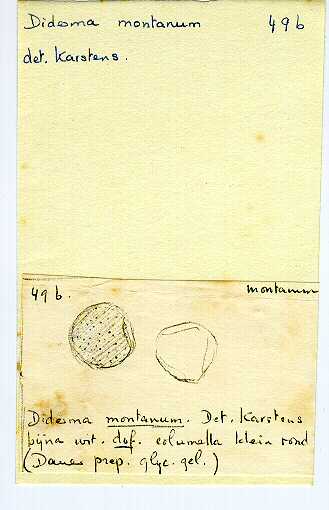 Diderma montanum 49b
det. Karstens.
49b. montanum
Diderma montanum. Det. Karstens
bijna wit. dof. columella klein rond
(Dauer prep. glyc. gel.)